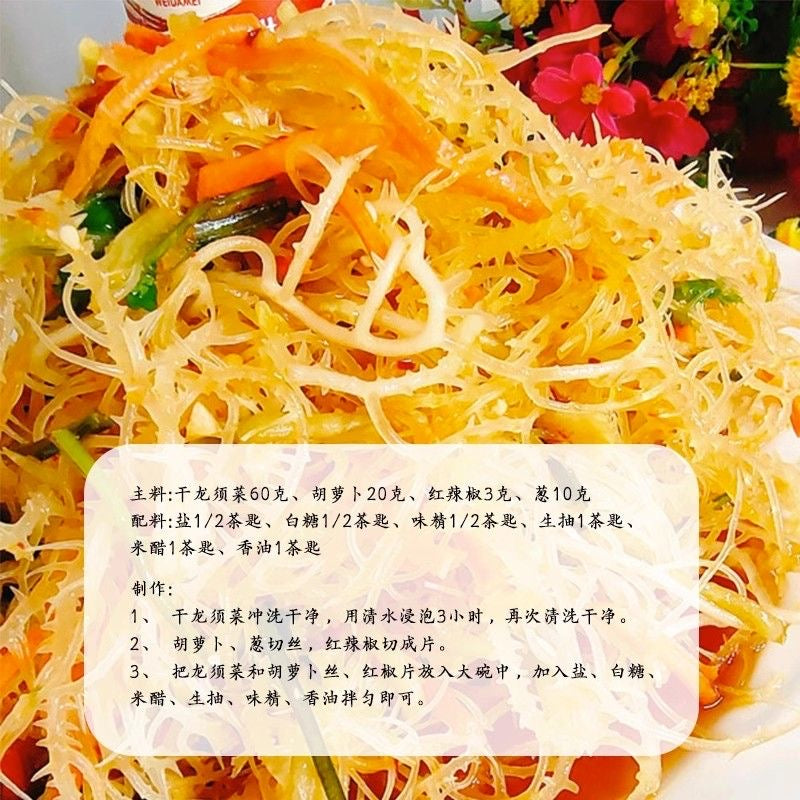 WEIDAMEI
主料:干龙须菜60克、胡萝卜20克、红辣椒3克、葱10克
配料:盐1/2茶匙、白糖1/2茶匙、味精1/2茶匙、生抽1茶匙、
米醋1茶匙、香油1茶匙
制作:
1、 干龙须菜冲洗干净，用清水浸泡3小时，再次清洗干净。
2、 胡萝卜、葱切丝，红辣椒切成片。
3、 把龙须菜和胡萝卜丝、红椒片放入大碗中，加入盐、白糖、
米醋、生抽、味精、香油拌匀即可。